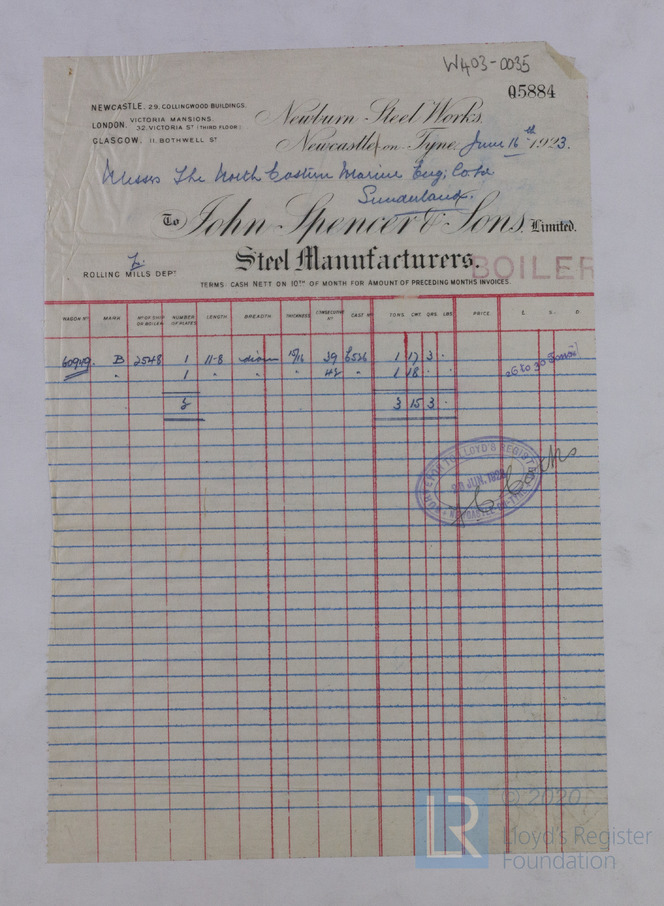 W403-0035
Q5884
NEWCASTLE, 29, COLLINGWOOD BUILDINGS.
LONDON, VICTORIA MANSIONS, 32, VICTORIA ST (THIRD FLOOR)
GLASGOW, 11, BOTHWELL ST
Newburn Steel Works,
Newcastle on Tyne, June 16th 1923.
Messrs The North Eastern Marine Eng. Co Ld
Sunderland.
To John Spencer & Sons, Limited.
Steel Manufacturers.
BOILER
ROLLING MILLS DEPT
TERMS: CASH NETT ON 10TH OF MONTH FOR AMOUNT OF PRECEDING MONTHS INVOICES.
WAGON No MARK No OF SHIP OR BOILER NUMBER OF PLATES LENGTH BREADTH THICKNESS CONSECUTIVE No CAST No TONS CWT. QRS. LBS. PRICE £ S. D.
60949. B 2548 1 11-8 diam 15/16 39 6526 1 17 3 . 26 to 30 Tons
" 1 " " " " 1 18 . .
2 3 15 3 .
LLOYD'S REGISTER
20 JUN. 1923
NEWCASTLE-ON-TYNE
© 2020
LR
Lloyd's Register
Foundation